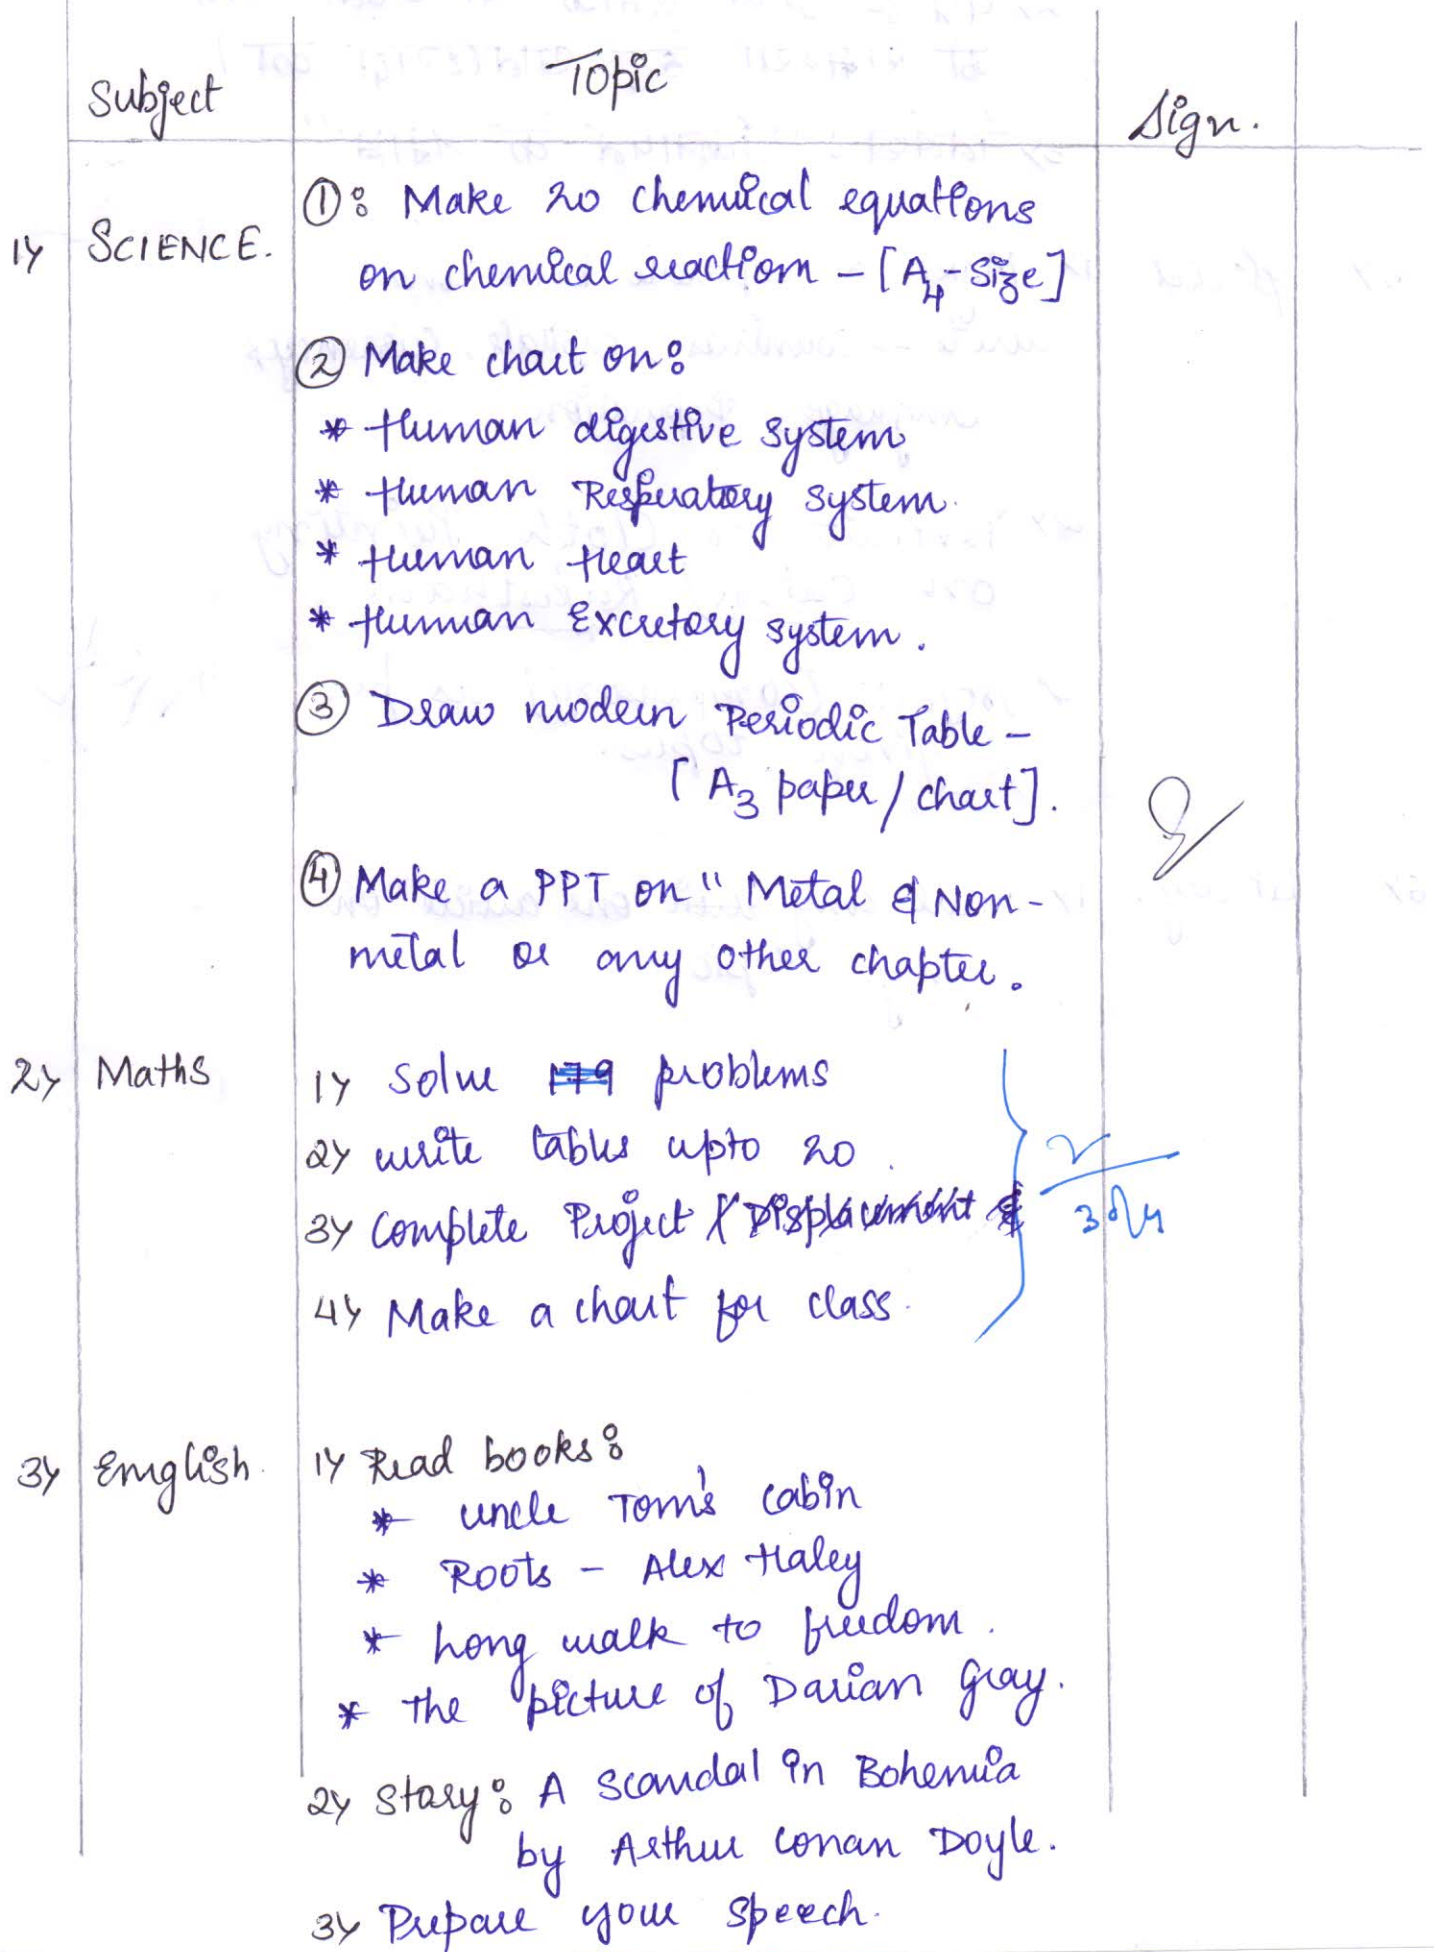 Subject Topic Sign.
1) SCIENCE. ①: Make 20 chemical equations
on chemical reactiom - [A4-Size]
② Make chart on:
* Human digestive system
* Human Respiratory system.
* Human Heart
* Human Excretory system.
③ Draw modern Periodic Table -
[A3 paper / chart].
④ Make a PPT on " Metal & Non-
metal or any other chapter.
2) Maths 1) Solve problems
2) write tables upto 20.
3) Complete Project / Displacement &
4) Make a chart for class.
3) Emglish. 1) Read books:
* uncle Tom's cabin
* Roots - Alex Haley
* Long walk to freedom.
* the picture of Darian Gray.
2) Story: A Scandal in Bohemia
by Arthur Conan Doyle.
3) Prepare your speech.